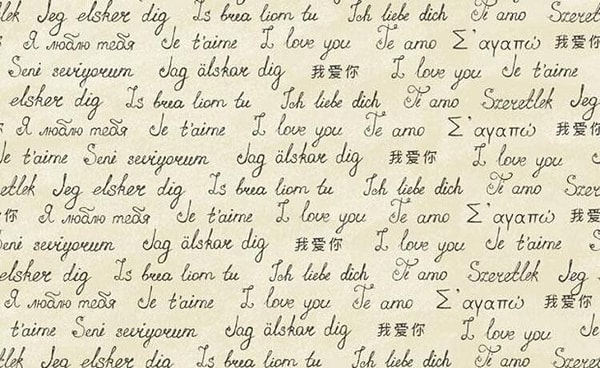 Jeg elsker dig Is brea liom tu Ich liebe dich Ti amo Szeretlek
Я люблю тебя Je t'aime I love you Te amo Σ'αγαπώ 我爱你
Seni seviyorum Jag älskar dig 我爱你 I love you Je t'aime
elsker dig Is brea liom tu Ich liebe dich Ti amo Szeretlek Jeg
Я люблю тебя Je t'aime I love you Te amo Σ'αγαπώ 我爱你
t'aime Seni seviyorum Jag älskar dig 我爱你 I love you
retlek Jeg elsker dig Is brea liom tu Ich liebe dich Ti amo Szere
你 Я люблю тебя Je t'aime I love you Te amo Σ'αγαπώ 我爱
Seni seviyorum Jag älskar dig 我爱你 I love you Je t'aime
elsker dig Is brea liom tu Ich liebe dich Ti amo Szeretlek Jeg
Я люблю тебя Je t'aime I love you Te amo Σ'αγαπώ 我爱你
t'aime Seni seviyorum Jag älskar dig 我爱你 I love you
tlek Jeg elsker dig Is brea liom tu Ich liebe dich Ti amo Szeretl